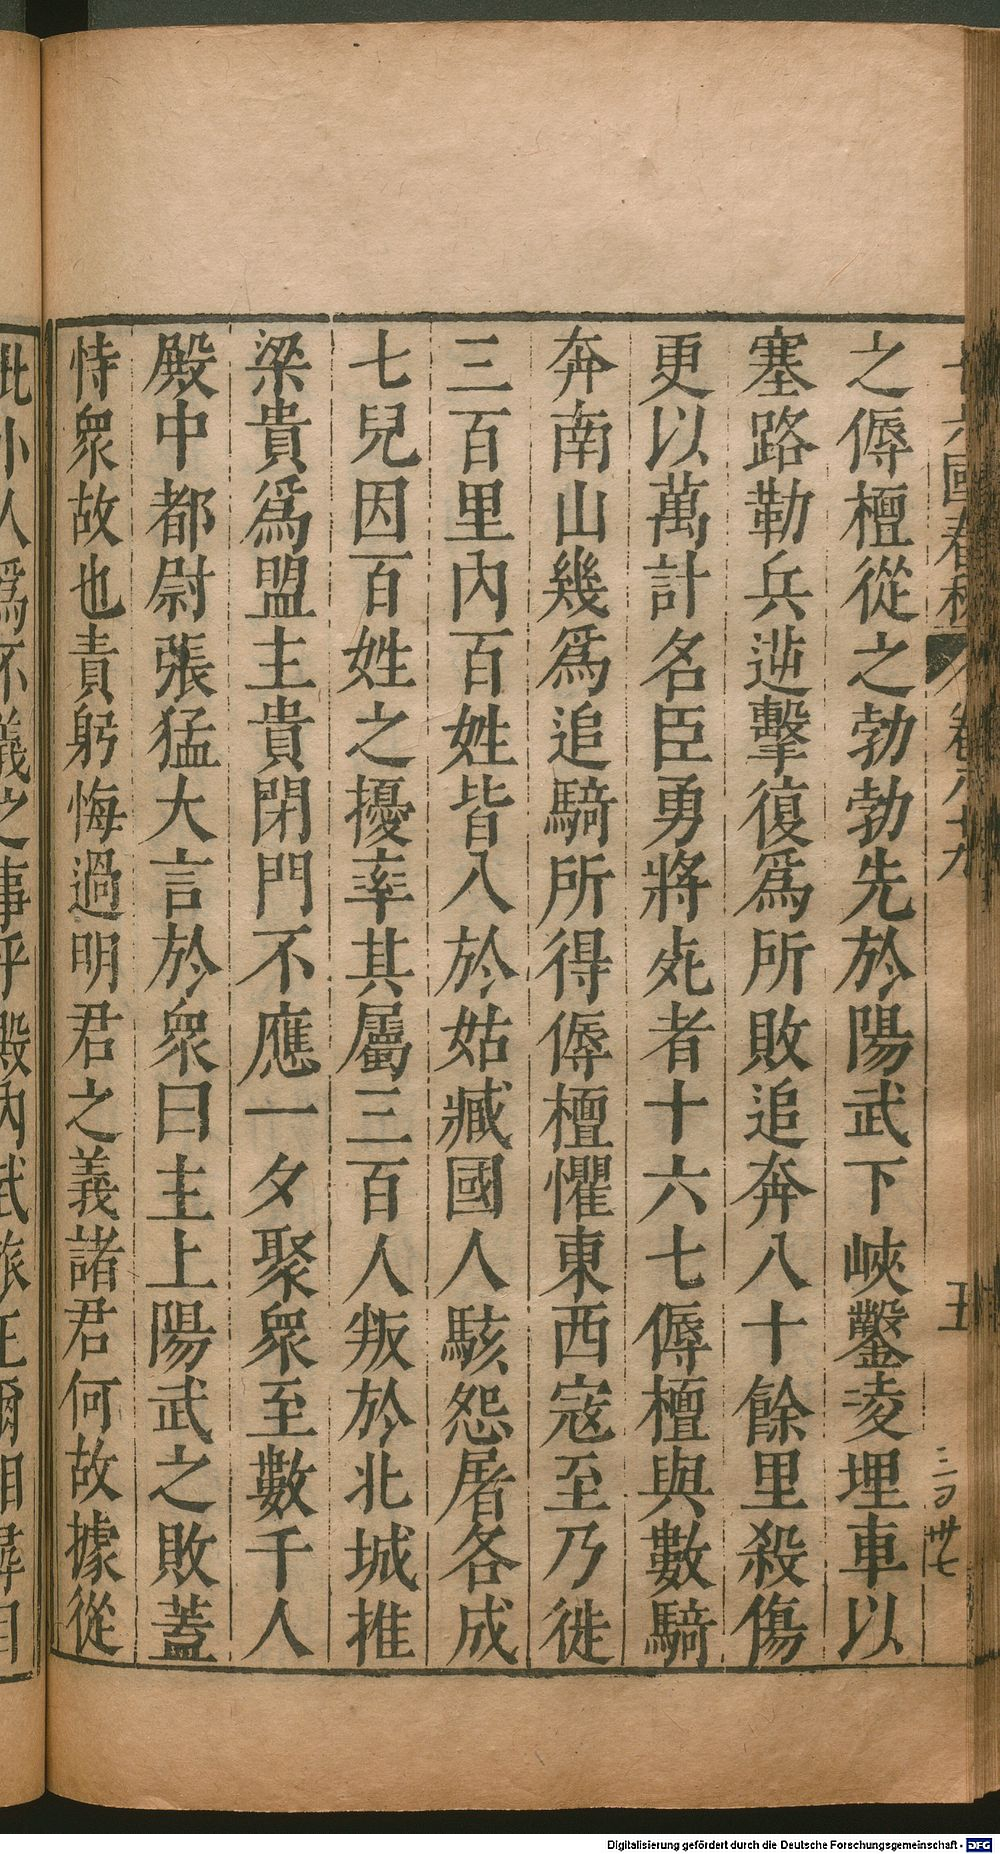 之傉檀從之勃勃先於陽武下峽鑿凌埋車以
塞路勒兵逆擊復為所敗追奔八十餘里殺傷
更以萬計名臣勇將死者十六七傉檀與數騎
奔南山幾為追騎所得傉檀懼東西寇至乃徙
三百里內百姓皆入於姑臧國人駭怨屠各成
七兒因百姓之擾率其屬三百人叛於北城推
梁貴為盟主貴閉門不應一夕聚眾至數千人
殿中都尉張猛大言於眾曰主上陽武之敗蓋
恃眾故也責躬悔過明君之義諸君何故據從
此小人為不義之事乎殿內武旅正爾相尋目
Digitalisierung gefördert durch die Deutsche Forschungsgemeinschaft - DFG